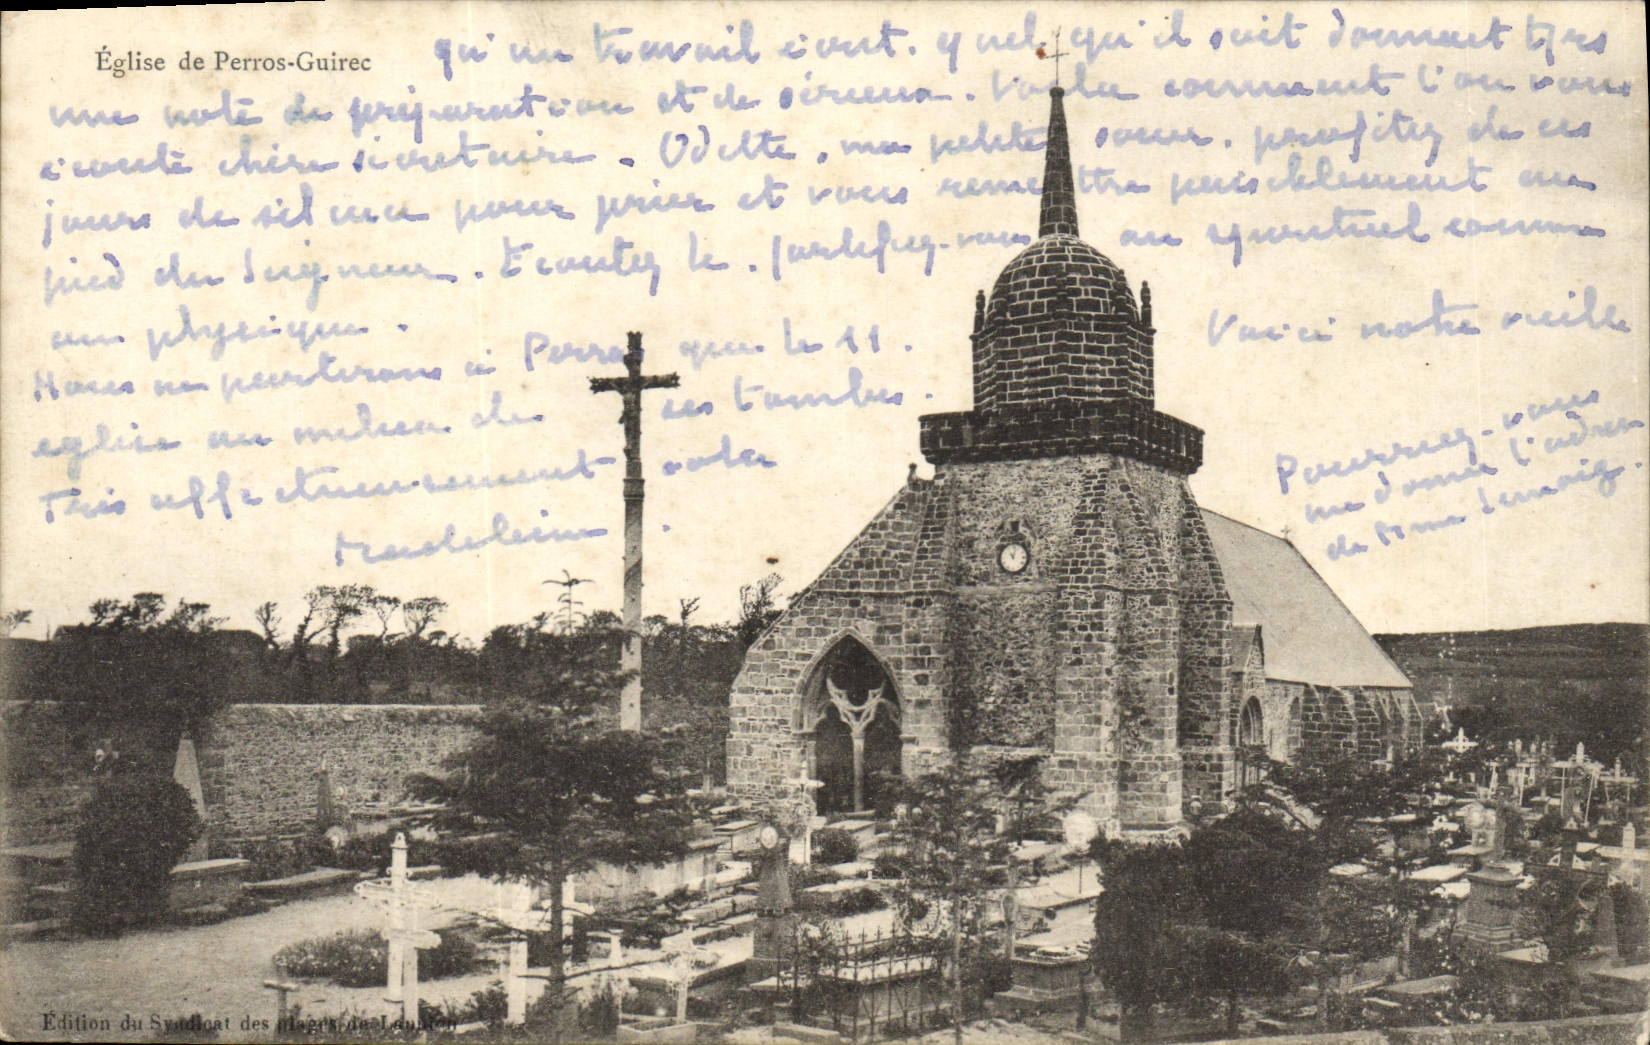 Église de Perros-Guirec
qu'un travail écrit. quel qu'il soit donnait très
une note de préparation et de sérieux. Voilà comment l'on vous
écoute chère secrétaire. Odette, ma petite sœur, profitez de ces
jours de silence pour prier et vous remettre paisiblement au
pied du Seigneur. Ecoutez le. fortifiez-vous au spirituel comme
au physique.
Nous ne partirons à Perros que le 11. Voici notre vieille
église au milieu de ses tombes.
Très affectueusement votre
Madeleine.
Pourriez-vous
me donner l'adresse
de Mme
Édition du Syndicat des plages de Lannion